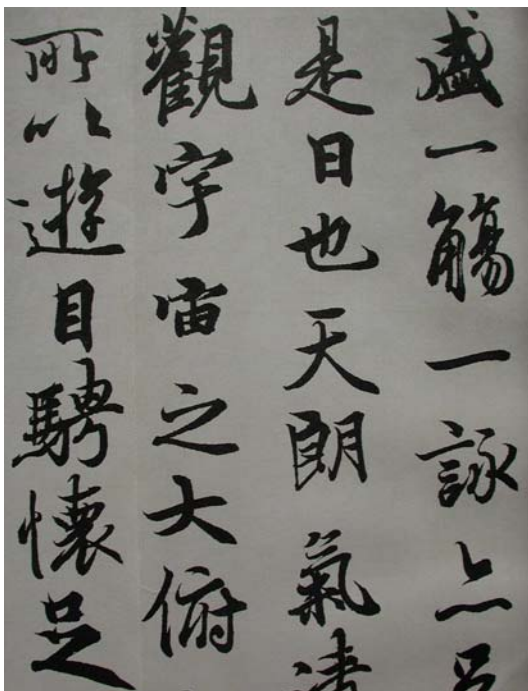 盛一觴一詠亦足
是日也天朗氣清
觀宇宙之大俯
所以遊目騁懷足